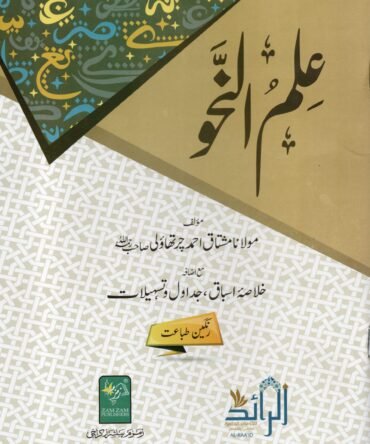 عِلمُ النَّحو
مؤلف
مولانا مشتاق احمد چرتھاولی صاحب رحمہ اللہ
مع اضافہ
خلاصۂ اسباق، جداول وتسہیلات
رنگین طباعت
ZAM ZAM
PUBLISHERS
زمزم پبلشرز کراچی
الرائد
AL-RAA'ID